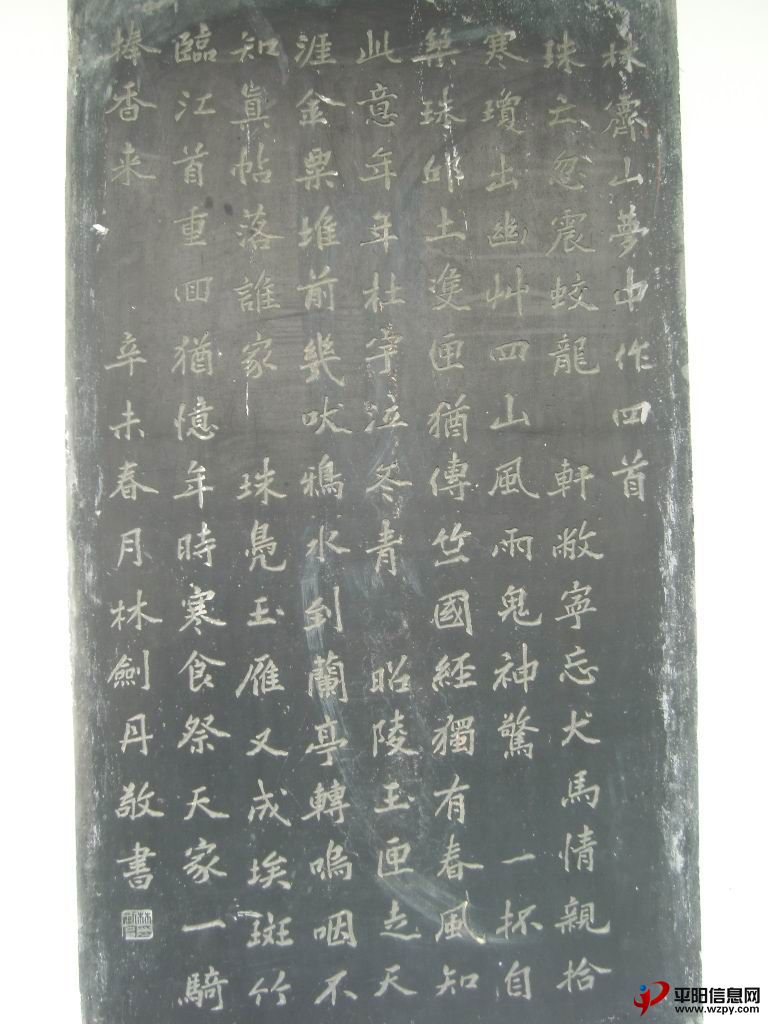 林霽山夢中作四首
珠亡忽震蛟龍　軒敝寧忘犬馬情親拾
寒瓊出幽艸四山風雨鬼神驚　一抔自
築珠邱土雙匣猶傳竺國經獨有春風知
此意年年杜宇泣冬青　昭陵玉匣走天
涯金粟堆前幾吠鴉水到蘭亭轉嗚咽不
知真帖落誰家　珠鳧玉雁又成埃斑竹
臨江首重回猶憶年時寒食祭天家一騎
捧香來　辛未春月林劍丹敬書
平阳信息网
www.wzpy.com